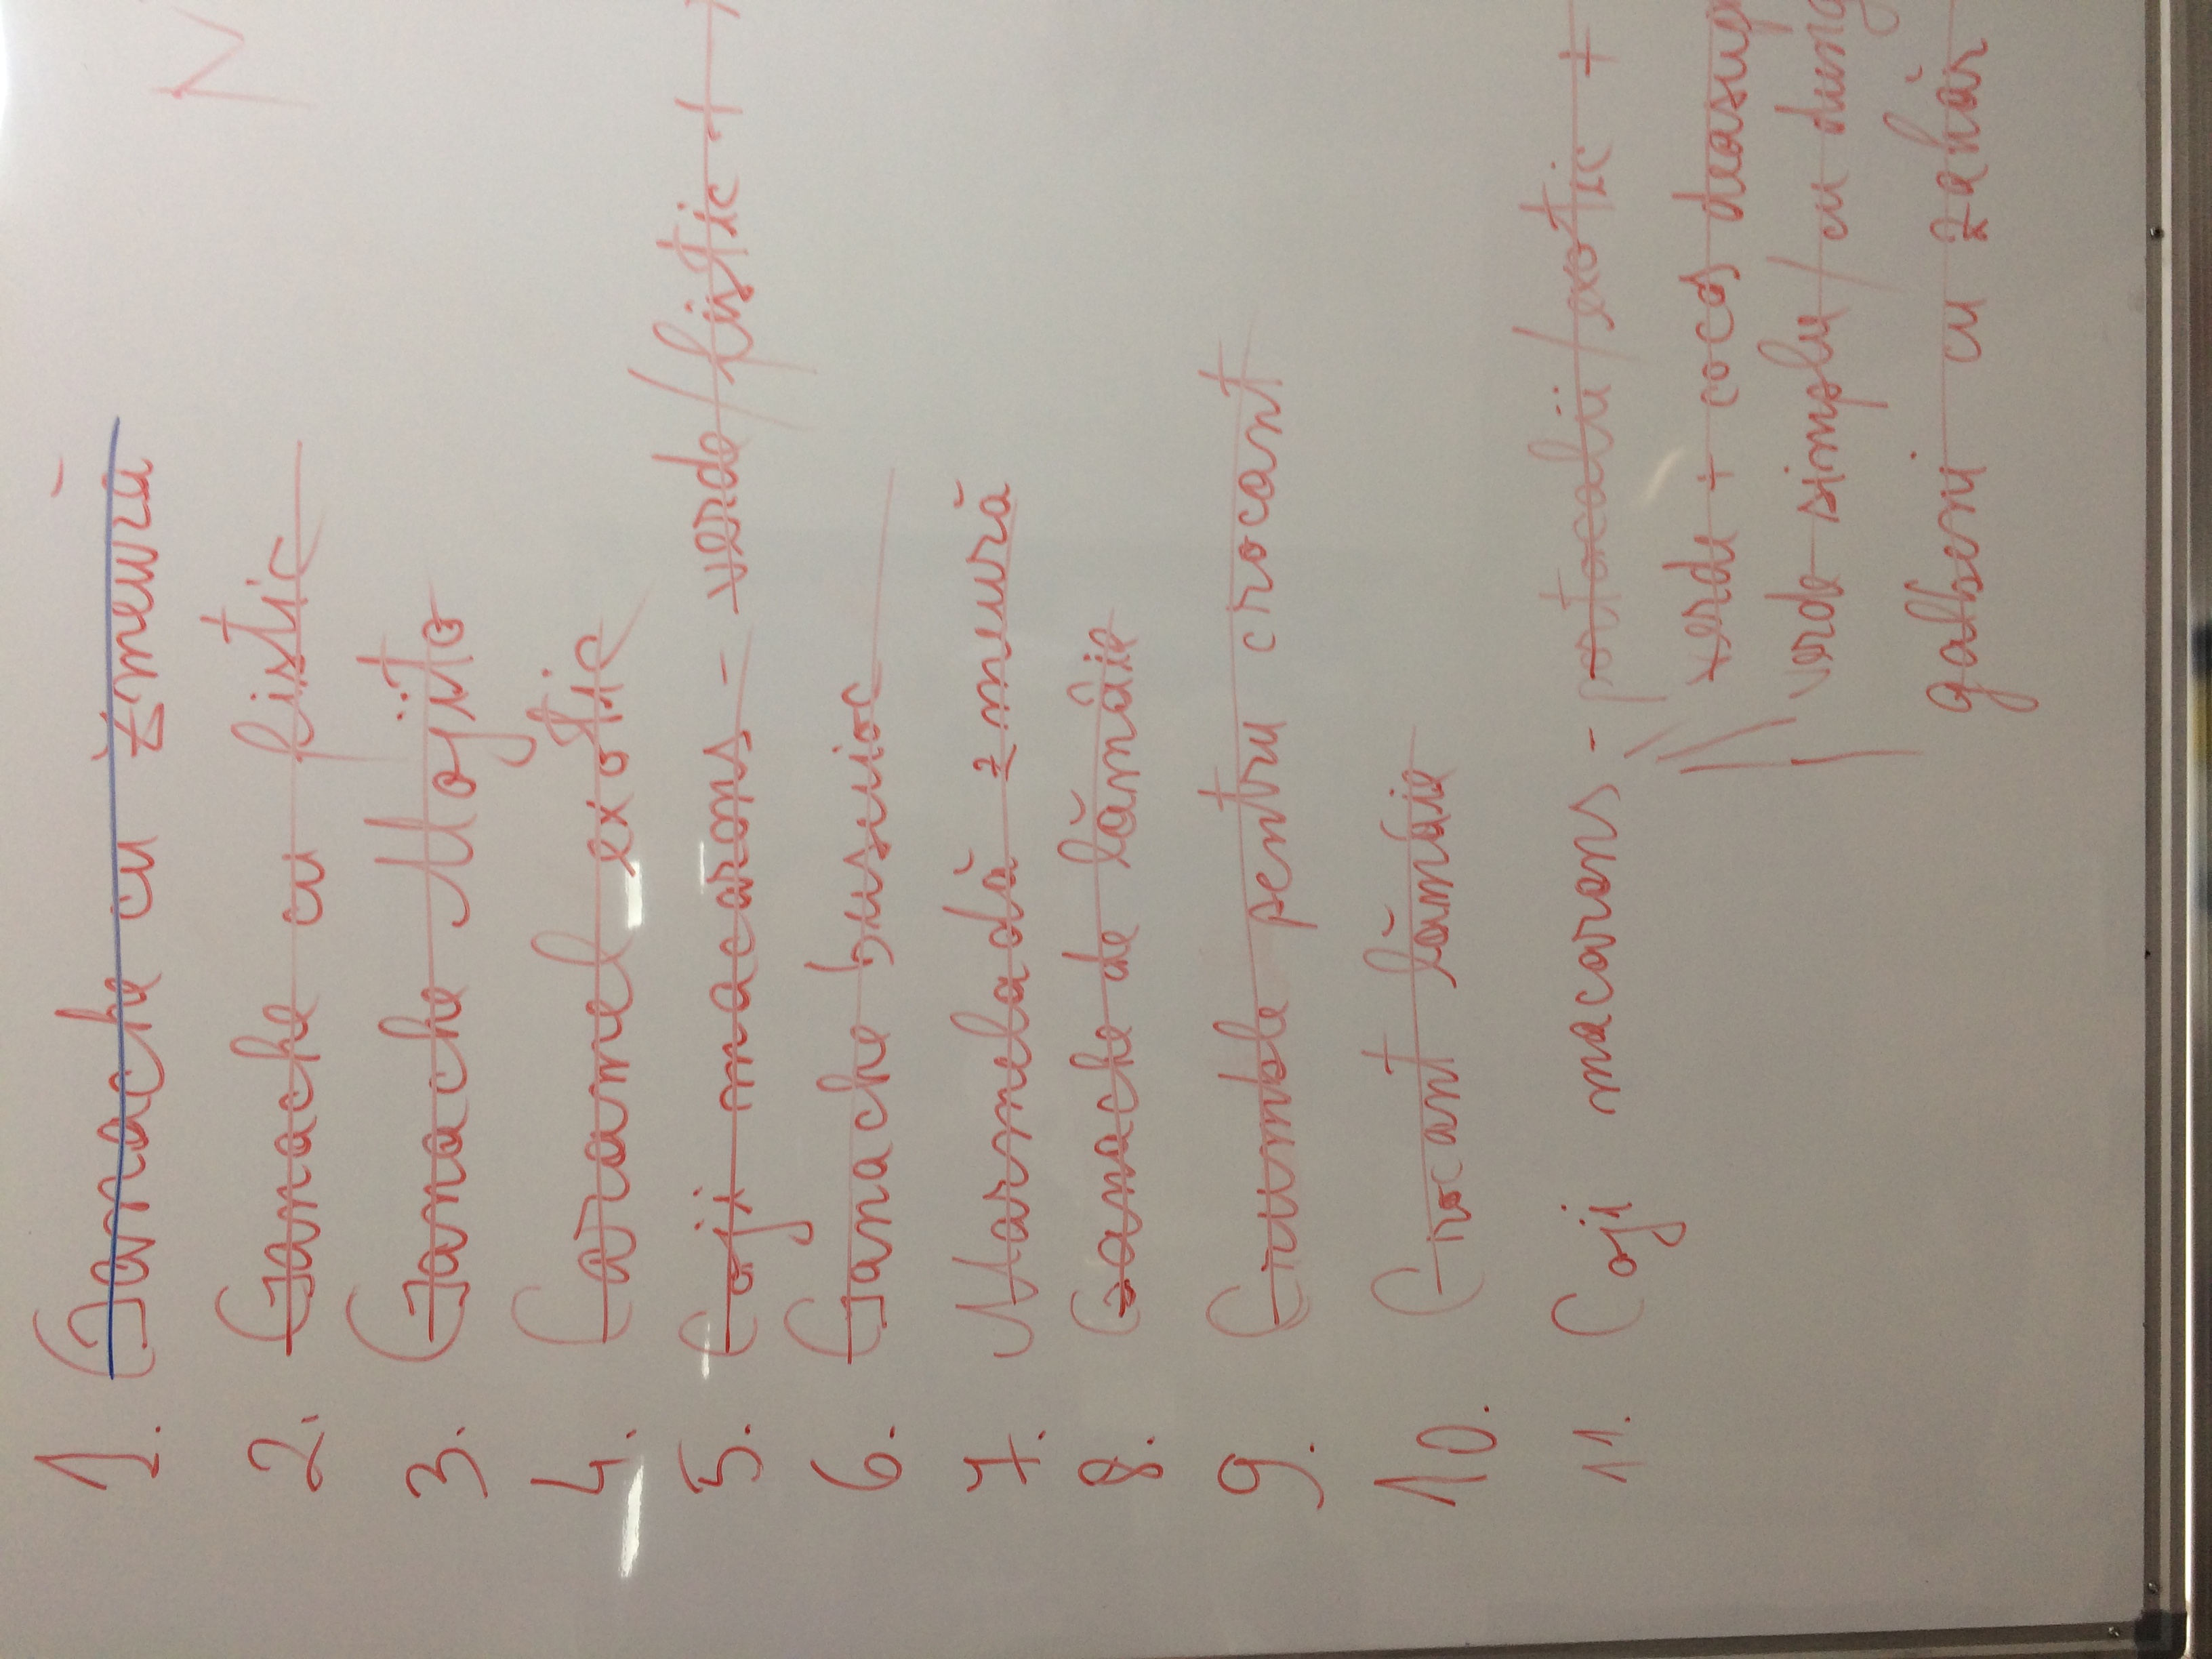 1. Ganache cu zmeură
2. Ganache cu fistic
3. Ganache Mojito
4. Caramel exotic
5. Coji macarons - verde / fistic +
6. Ganache busuioc
7. Marmeladă zmeură
8. Ganache de lămâie
9. Crumble pentru crocant
10. Crocant lămâie
11. Coji macarons - portocalii / exotic +
verde + cocos deasup
verde simplu / cu dung
galbeni cu zahăr